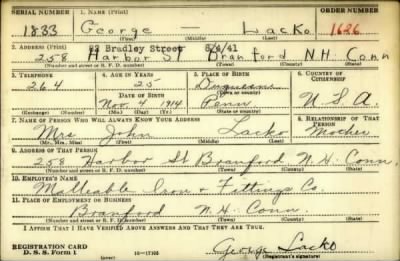 SERIAL NUMBER 1. NAME (Print) ORDER NUMBER
1833 George — Lacko 1626
(First) (Middle) (Last)
2. ADDRESS (Print) 63 Bradley Street 8/4/41
258 Harbor St Branford N.H. Conn
(Number and street or R. F. D. number) (Town) (County) (State)
3. TELEPHONE 4. AGE IN YEARS 5. PLACE OF BIRTH 6. COUNTRY OF CITIZENSHIP
264 25 Duquesne
DATE OF BIRTH (Town or county)
Nov. 4 1914 Penn U.S.A.
(Exchange) (Number) (Mo.) (Day) (Yr.) (State or country)
7. NAME OF PERSON WHO WILL ALWAYS KNOW YOUR ADDRESS 8. RELATIONSHIP OF THAT PERSON
Mrs John Lacko Mother
(Mr., Mrs., Miss) (First) (Middle) (Last)
9. ADDRESS OF THAT PERSON
258 Harbor St Branford N.H. Conn.
(Number and street or R. F. D. number) (Town) (County) (State)
10. EMPLOYER'S NAME
Malleable Iron & Fittings Co.
11. PLACE OF EMPLOYMENT OR BUSINESS
Branford N.H. Conn.
(Number and street or R. F. D. number) (Town) (County) (State)
I AFFIRM THAT I HAVE VERIFIED ABOVE ANSWERS AND THAT THEY ARE TRUE.
REGISTRATION CARD
D. S. S. Form 1 16—17105 George Lacko
(Registrant's signature)